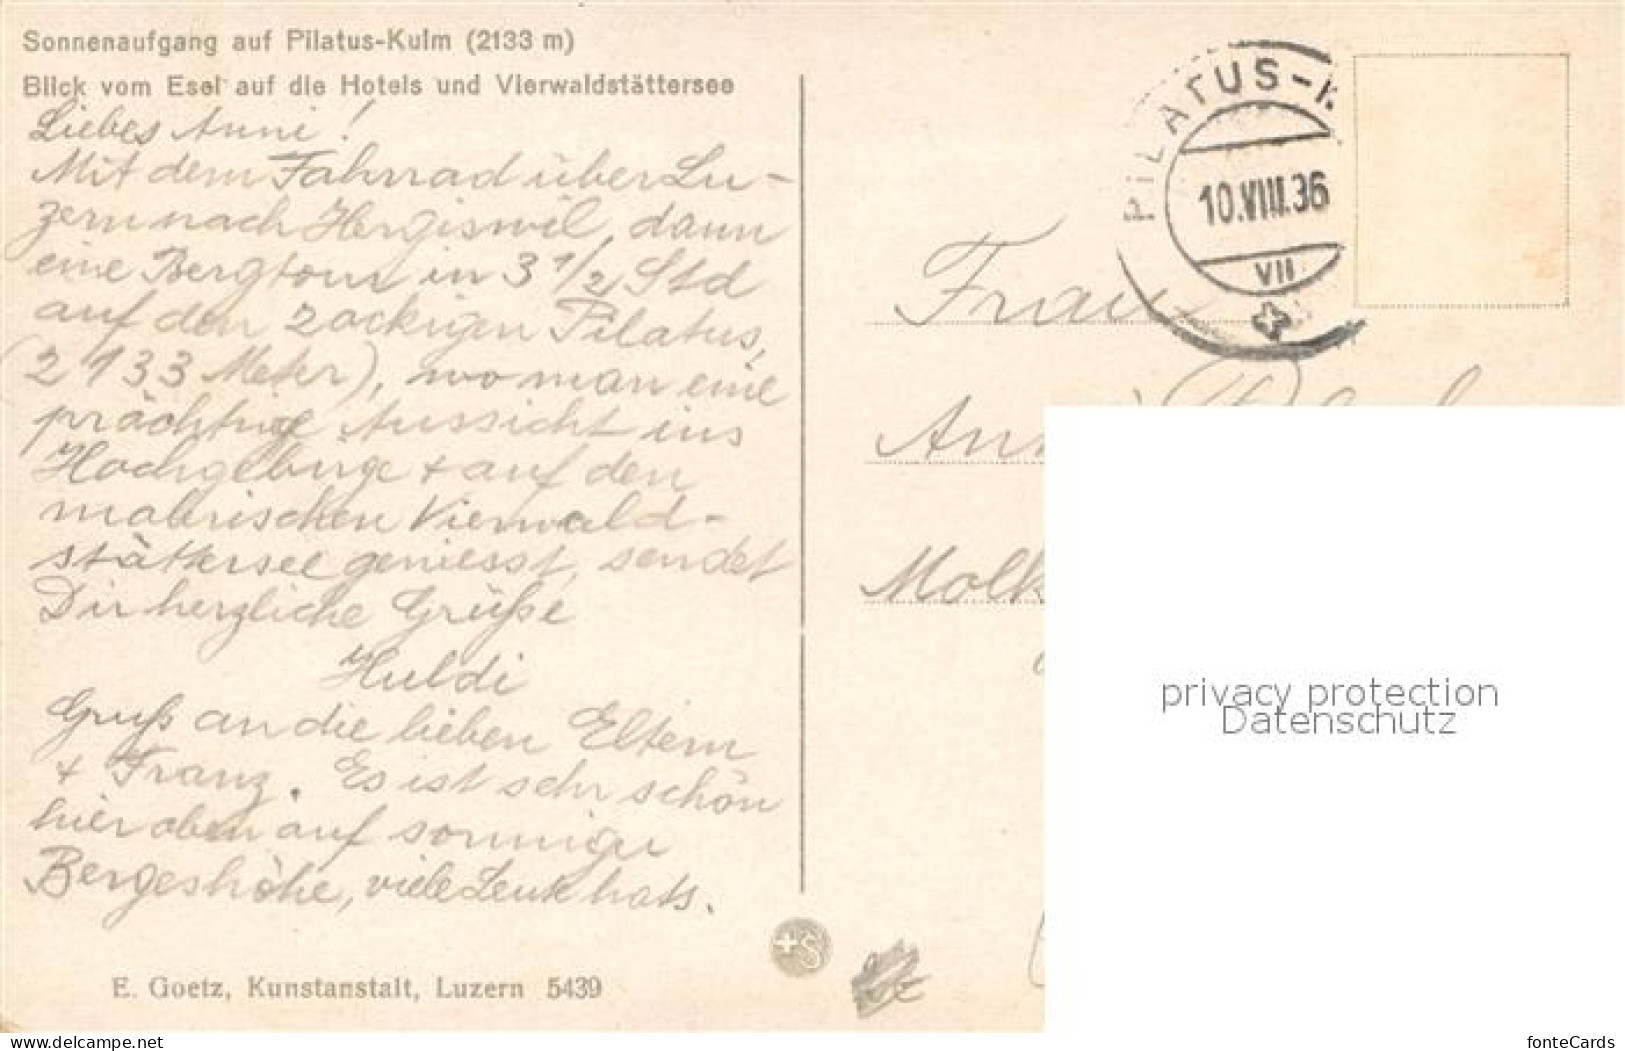 Sonnenaufgang auf Pilatus-Kulm (2133 m)
Blick vom Esel auf die Hotels und Vierwaldstättersee
Liebes Anni!
Mit dem Fahrrad über Lu-
zern nach Hergiswil, dann
eine Bergtour in 3 1/2 Std
auf den zackigen Pilatus,
(2133 Meter), wo man eine
prächtige Aussicht ins
Hochgebirge + auf den
malerischen Vierwald-
stättersee geniesst, sendet
Dir herzliche Grüße
Huldi
Gruß an die lieben Eltern
+ Franz. Es ist sehr schön
hier oben auf sonniger
Bergeshöhe, viele Leute hats.
E. Goetz, Kunstanstalt, Luzern 5439
+S
PILATUS-K
10.VIII.36
VII
Frau
Molk
privacy protection
Datenschutz
www.delcampe.net
fonteCards